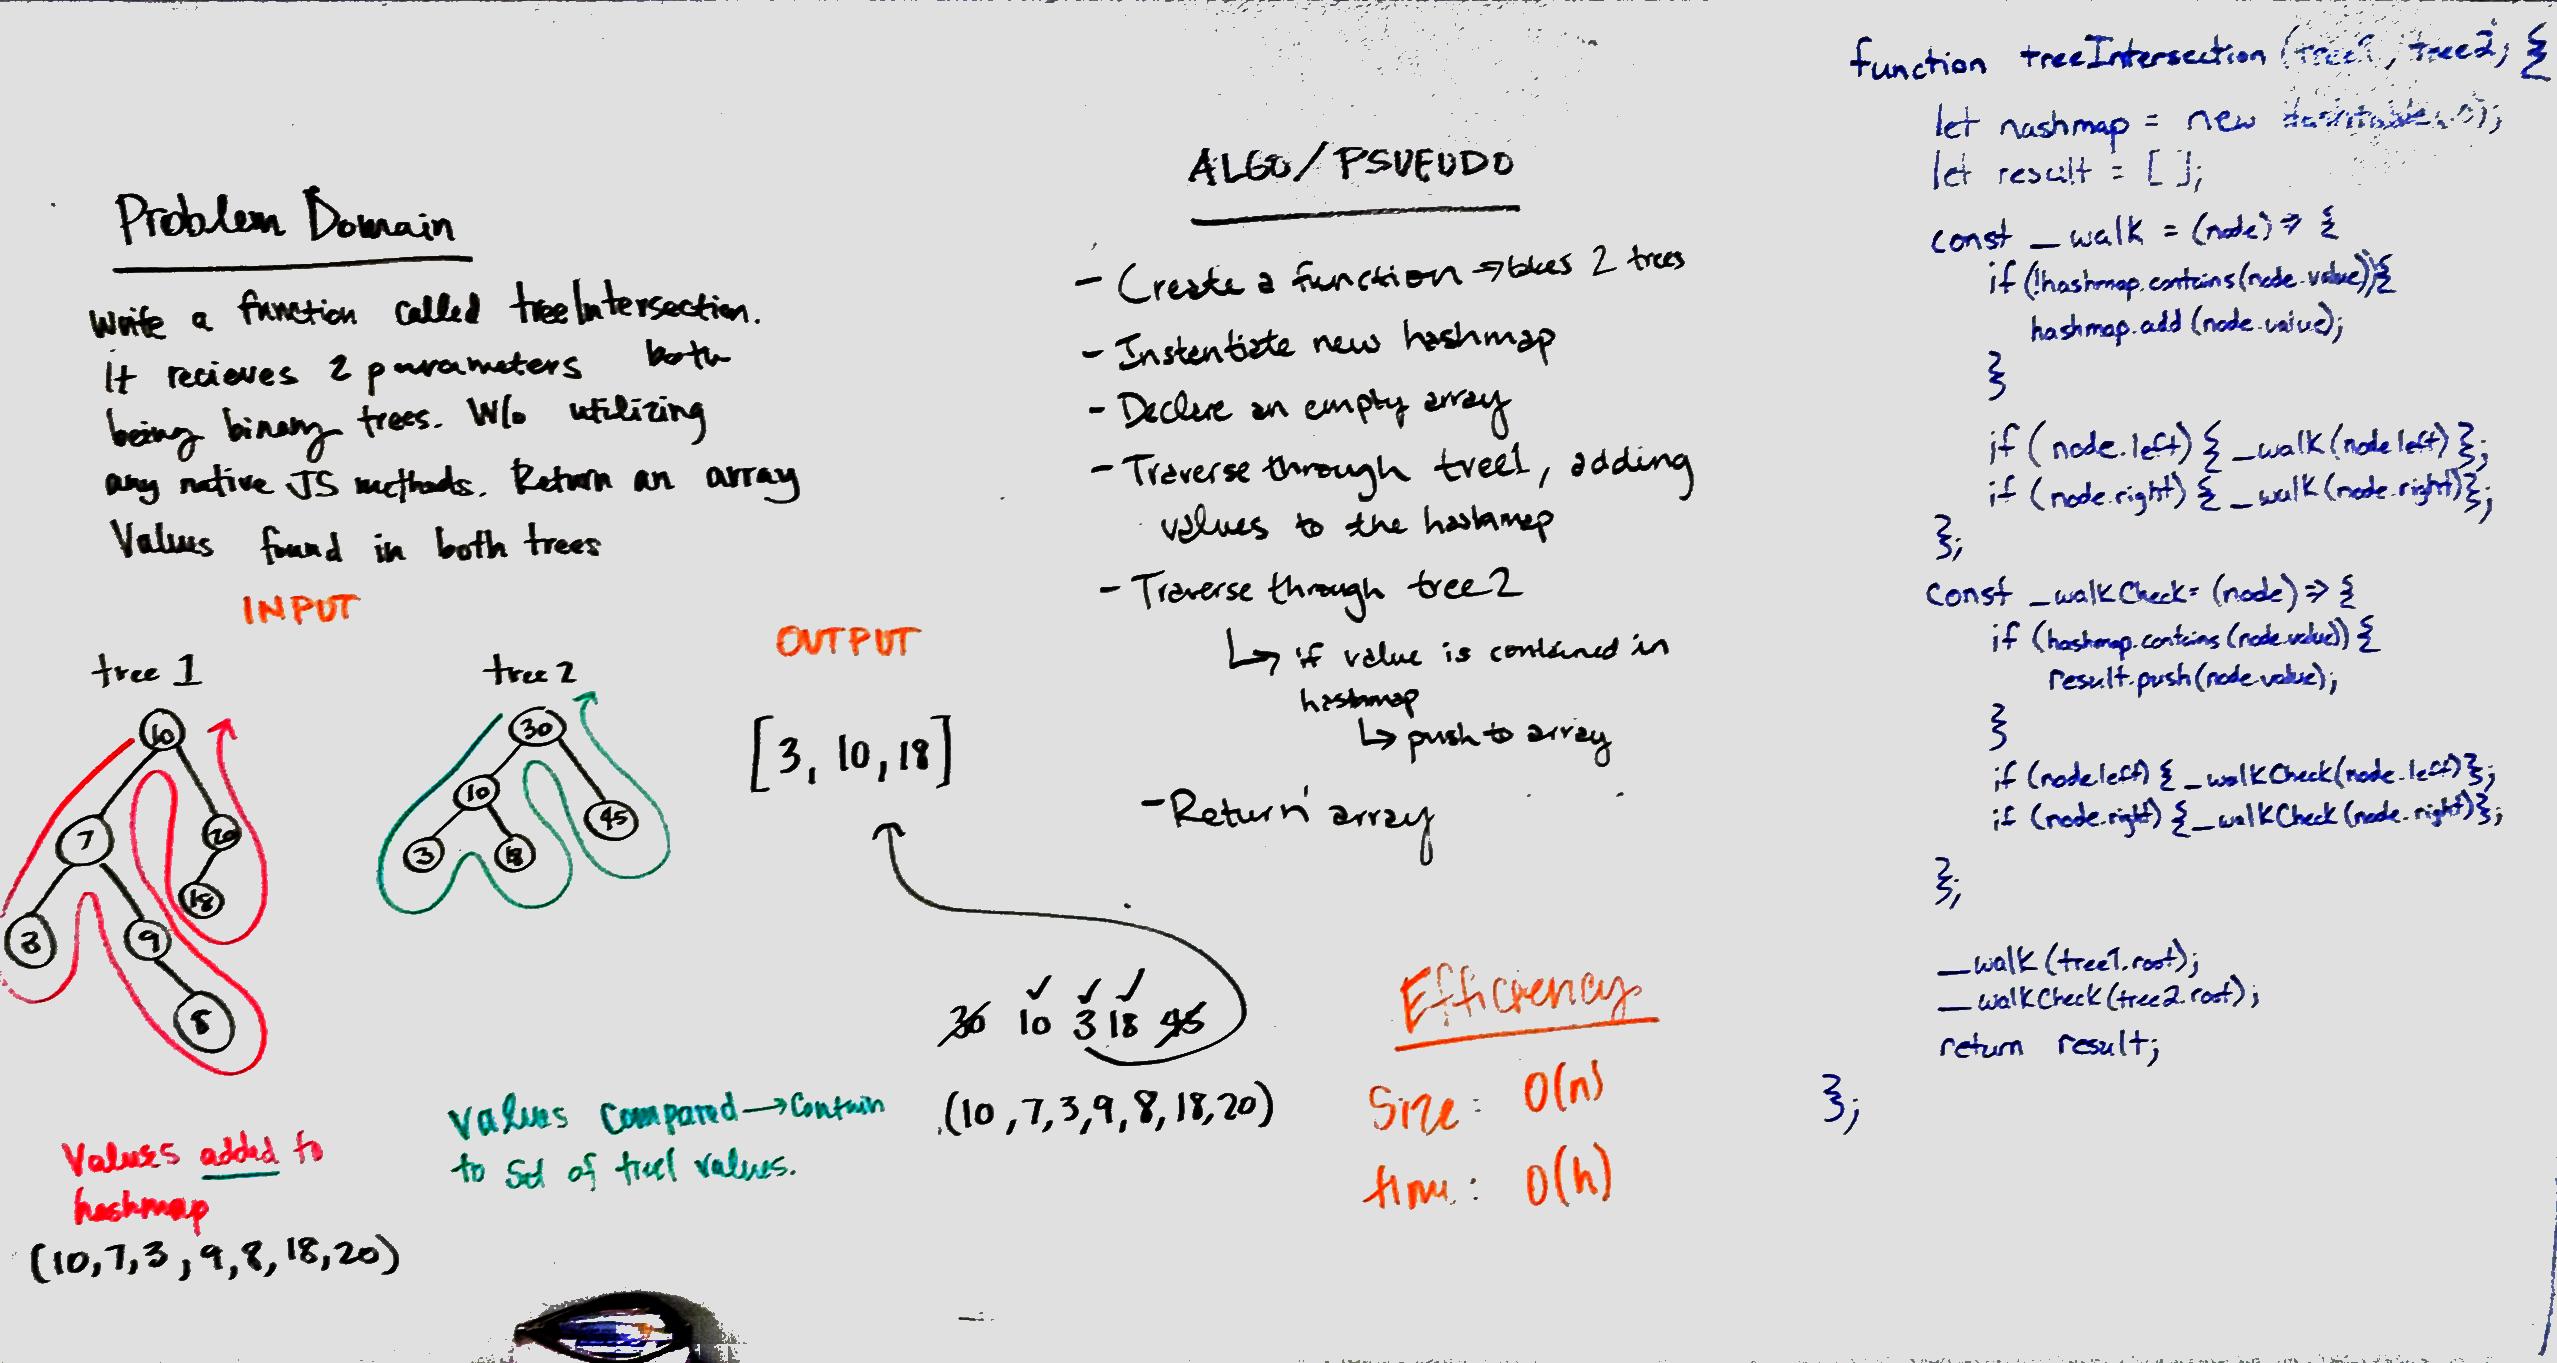 Problem Domain
Write a function called treeIntersection.
it recieves 2 parameters both
being binary trees. W/o utilizing
any native JS methods. Return an array
Values found in both trees
INPUT
tree 1
10
7
20
18
3
9
8
Values added to
hashmap
(10,7,3,9,8,18,20)
tree 2
30
10
45
3
18
Values Compared → Contain
to Set of tree1 values.
OUTPUT
[3, 10, 18]
30 10 3 18 45
(10, 7, 3, 9, 8, 18, 20)
ALGO/PSUEUDO
- Create a function → takes 2 trees
- Instentiate new hashmap
- Declare an empty array
- Traverse through tree1, adding
values to the hashmap
- Traverse through tree2
↳ if value is contained in
hashmap
↳ push to array
- Return array
Efficiency
Size: O(n)
time: O(h)
function treeIntersection (tree1, tree2) {
let hashmap = new
let result = [ ];
const _walk = (node) => {
if (!hashmap.contains(node.value)){
hashmap.add(node.value);
}
if (node.left) { _walk(node.left) };
if (node.right) { _walk(node.right) };
};
const _walkCheck = (node) => {
if (hashmap.contains(node.value)) {
result.push(node.value);
}
if (node.left) { _walkCheck(node.left) };
if (node.right) { _walkCheck(node.right) };
};
_walk(tree1.root);
_walkCheck(tree2.root);
return result;
};